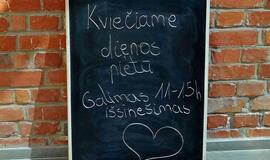 Kviečiame
dienos
pietų
Galimas 11-15h
išsinešimas